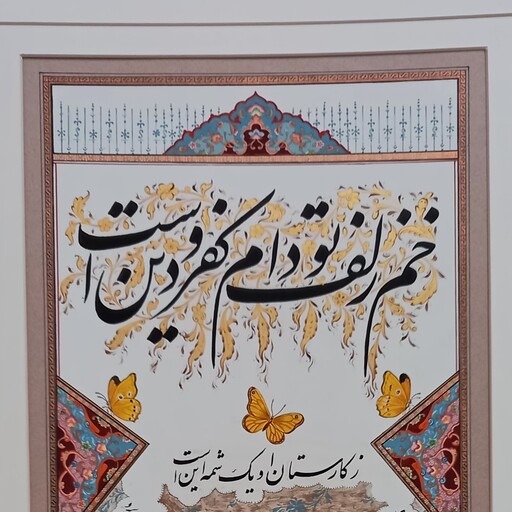 خم زلف تو دام کفر و دین است
ز کارستان او یک شمه این است